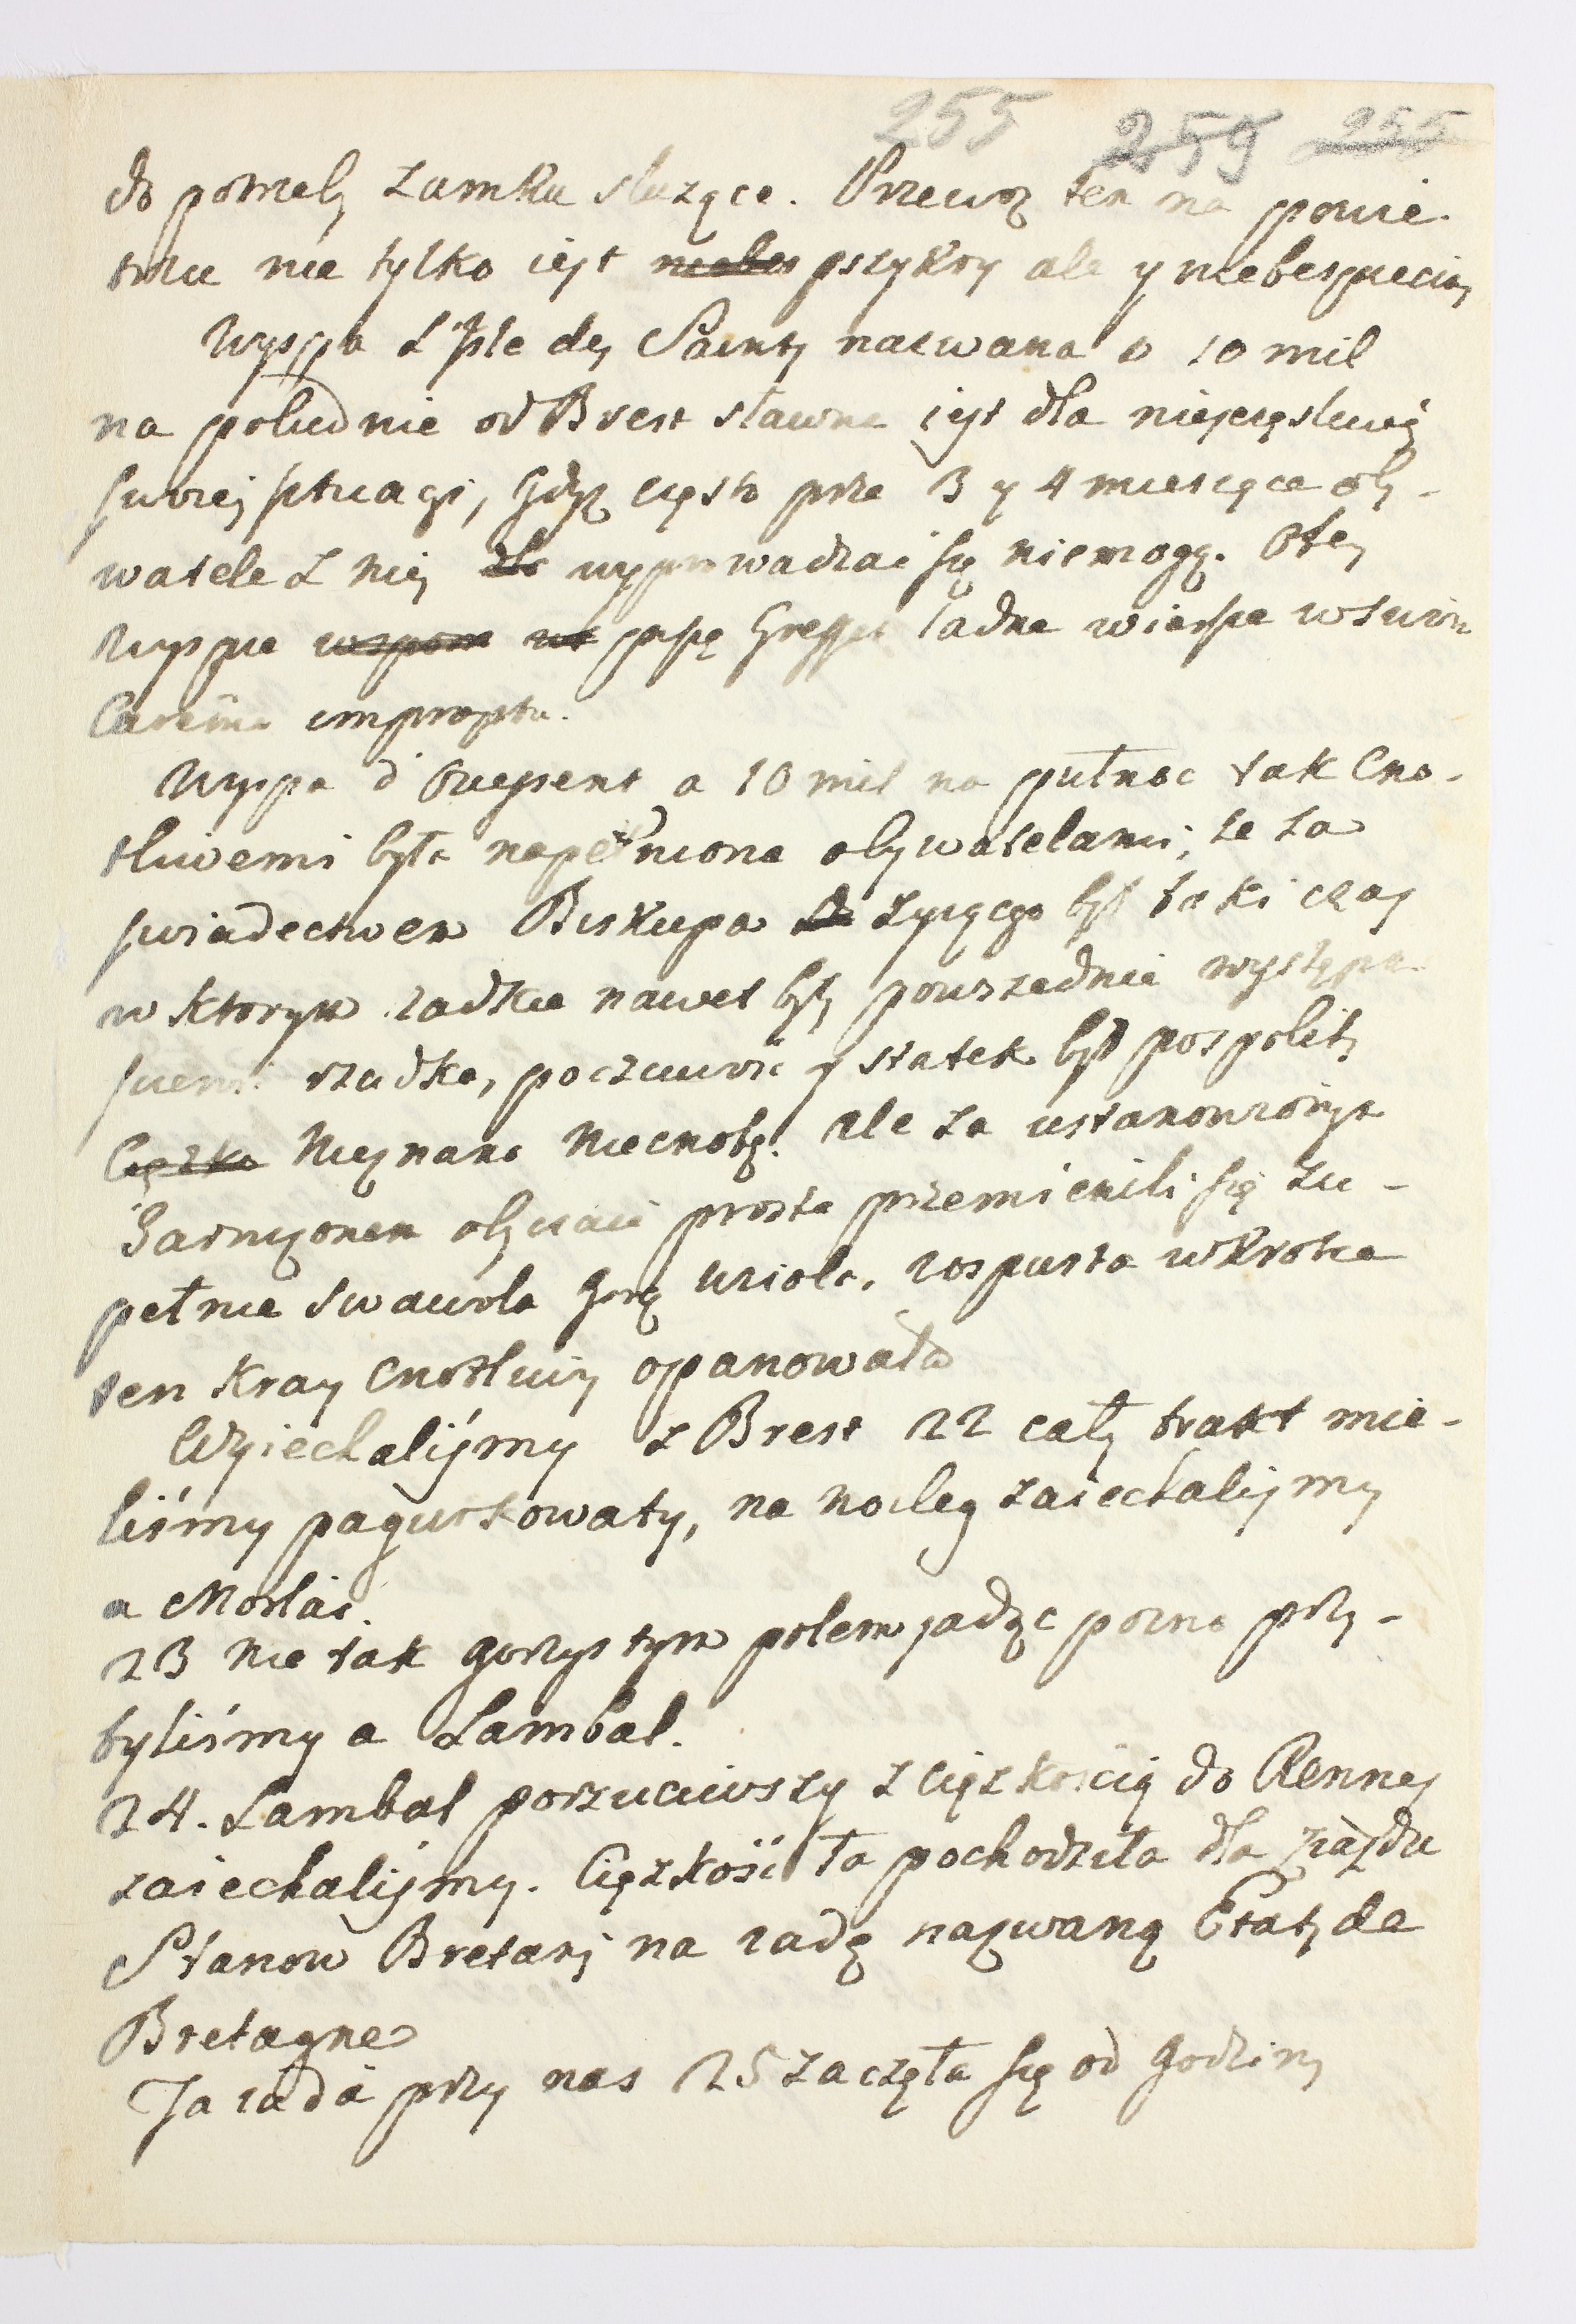 255 259 255
do potrzeby zamku służące. Przewoz ten na powie-
trzu nie tylko iest niebes przykry ale y niebespieczny
Wyspa L'Isle des Saints nazwana o 10 mil
na poludnie od Brest sławna iest dla niesczęsliwej
swoiej sytuacyi, Gdyż często prze 3 y 4 miesiące oby-
watele z niej zło wyprowadzać się niemogą. O tey
Wyspie wspom w pisze Gresset ładne wiersze w swoim
Careme impromptu.
Wyspa d'Ouessent a 10 mil na pułnoc tak Cno-
tliwemi była napełniona obywatelami, że za
swiadectwem Biskupa żyiącego był taki czas
w ktorym rzadkie nawet były powszednie występ
rzadka, poczciwość y statek był pospolity
Ciężka Nieznana Niecnota. Ale za ustanowionym
Garnizonem obyczaie proste przemienili się zu-
pełnie swawola Gorę wzioła, rospusta wkrotce
ten Kray Cnotliwy opanowała
Wyiechaliśmy z Brest 22 cały trakt mie-
liśmy pagurkowaty, na nocleg zaiechaliśmy
a Morlaï.
23 Nie tak gorzystym polem jadąc pozno przy-
byliśmy a Lambal.
24. Lambal porzuciwszy z ciężkoscią do Rennes
zaiechaliśmy. Ciężkość ta pochodziła dla ziazdu
Stanow Bretanij na radę nazwaną Etats de
Bretagne
Ta rada przy nas 25 zaczęła się od godziny